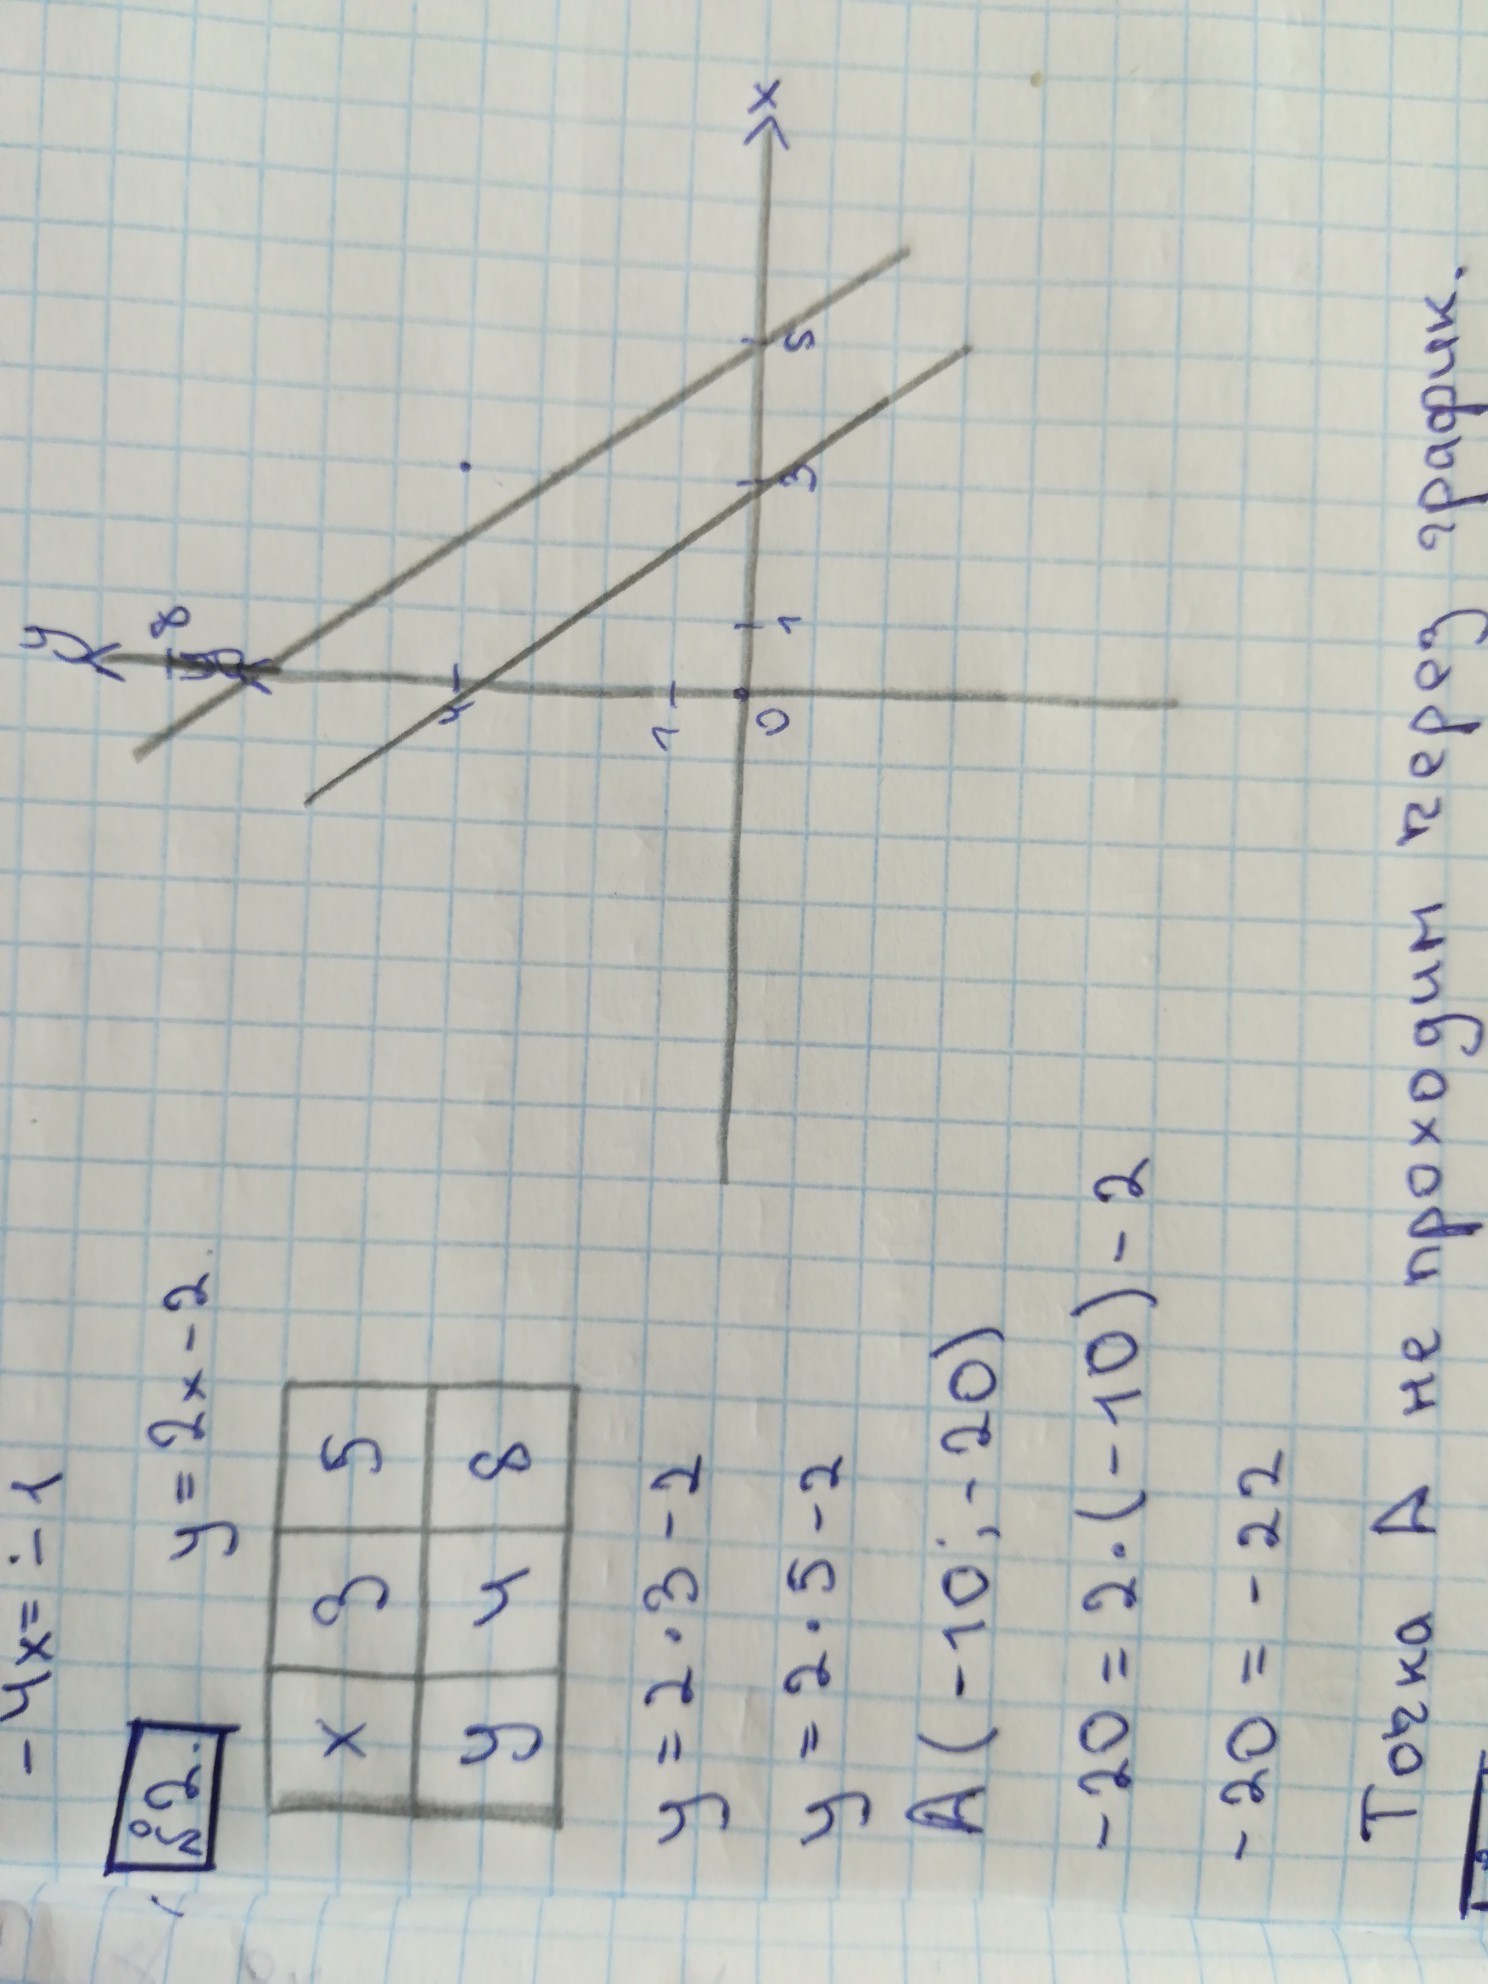 -4x = -1
№2.
y = 2x - 2
x 3 5
y 4 8
y = 2 · 3 - 2
y = 2 · 5 - 2
A (-10; -20)
-20 = 2 · (-10) - 2
-20 = -22
Точка A не проходит через график.
y
8
4
1
0
1
3
5
x